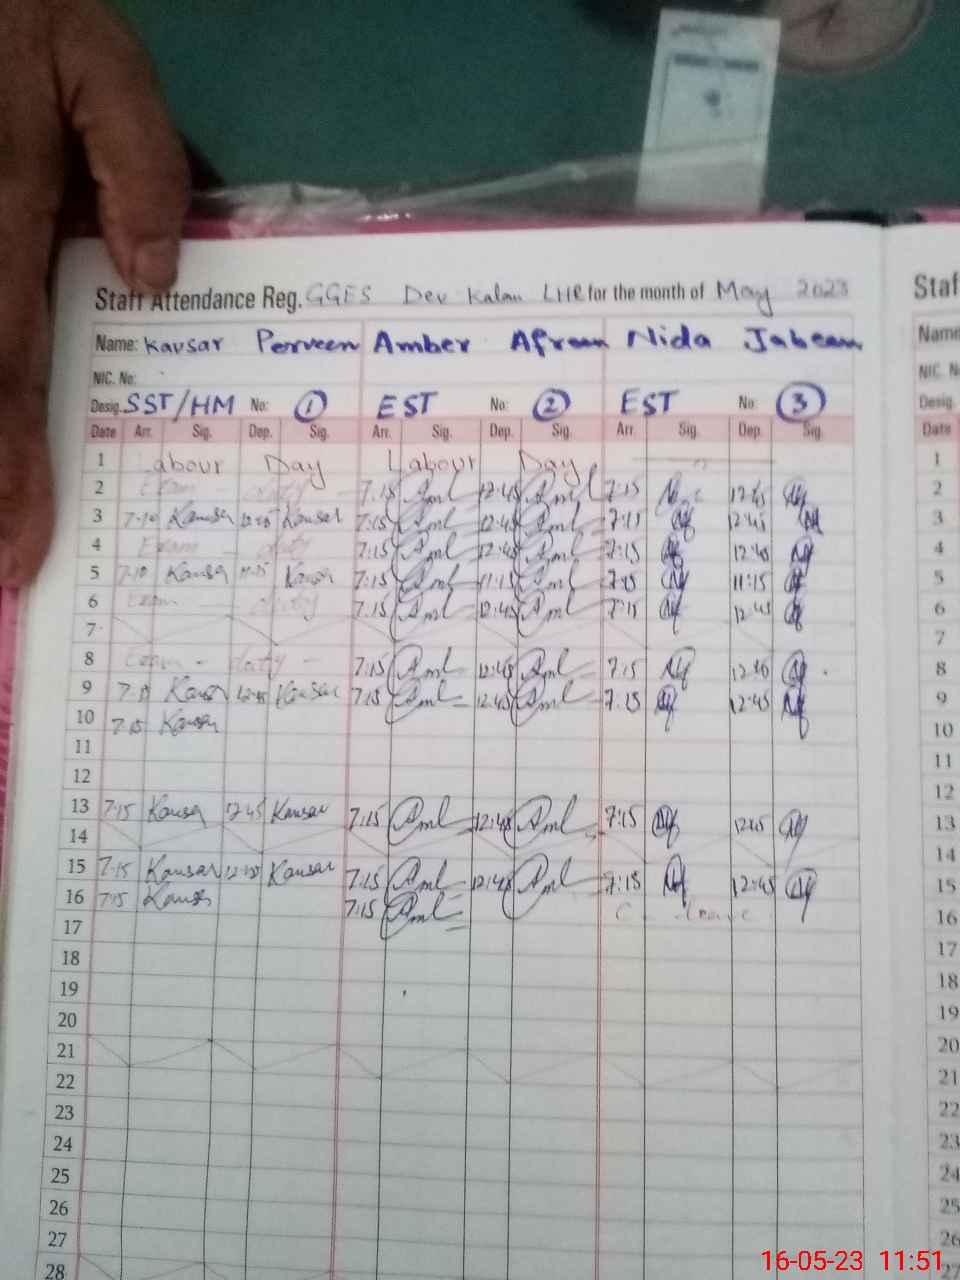 Staff Attendance Reg. GGES Dev Kalan LHR for the month of May 2023 Staf
Name: Kausar Perveen Amber Afreen Nida Jabeen Name
NIC. No: NIC. N
Desig. SST/HM No: 1 EST No: 2 EST No: 3 Desig
Date Arr. Sig. Dep. Sig. Arr. Sig. Dep. Sig. Arr. Sig. Dep. Sig. Date
1 Labour Day Labour Day 1
2 Exam - duty - 7:15 Aml 12:45 Aml 7:15 12:45 2
3 7:10 Kausar Kausar 7:15 Aml 12:45 Aml 12:45 3
4 Exam - duty 7:15 Aml 12:45 Aml 7:15 12:45 4
5 7:10 Kausar Kausar 7:15 Aml 11:15 Aml 7:15 11:15 5
6 Exam - duty 7:15 Aml 12:45 Aml 7:15 12:45 6
7 7
8 Exam - duty - 7:15 Aml 12:45 Aml 7:15 8
9 Kausar Kausar 7:15 Aml 12:45 Aml 7:15 12:45 9
10 7:15 Kausar 10
11 11
12 12
13 7:15 Kausar 12:45 Kausar 7:15 Aml 12:45 Aml 7:15 13
14 14
15 7:15 Kausar Kausar 7:15 Aml 12:45 Aml 7:15 12:45 15
16 7:15 Kausar 7:15 Aml C. leave 16
17 17
18 18
19 19
20 20
21 21
22 22
23 23
24 24
25 25
26 26
27 27
28
16-05-23 11:51